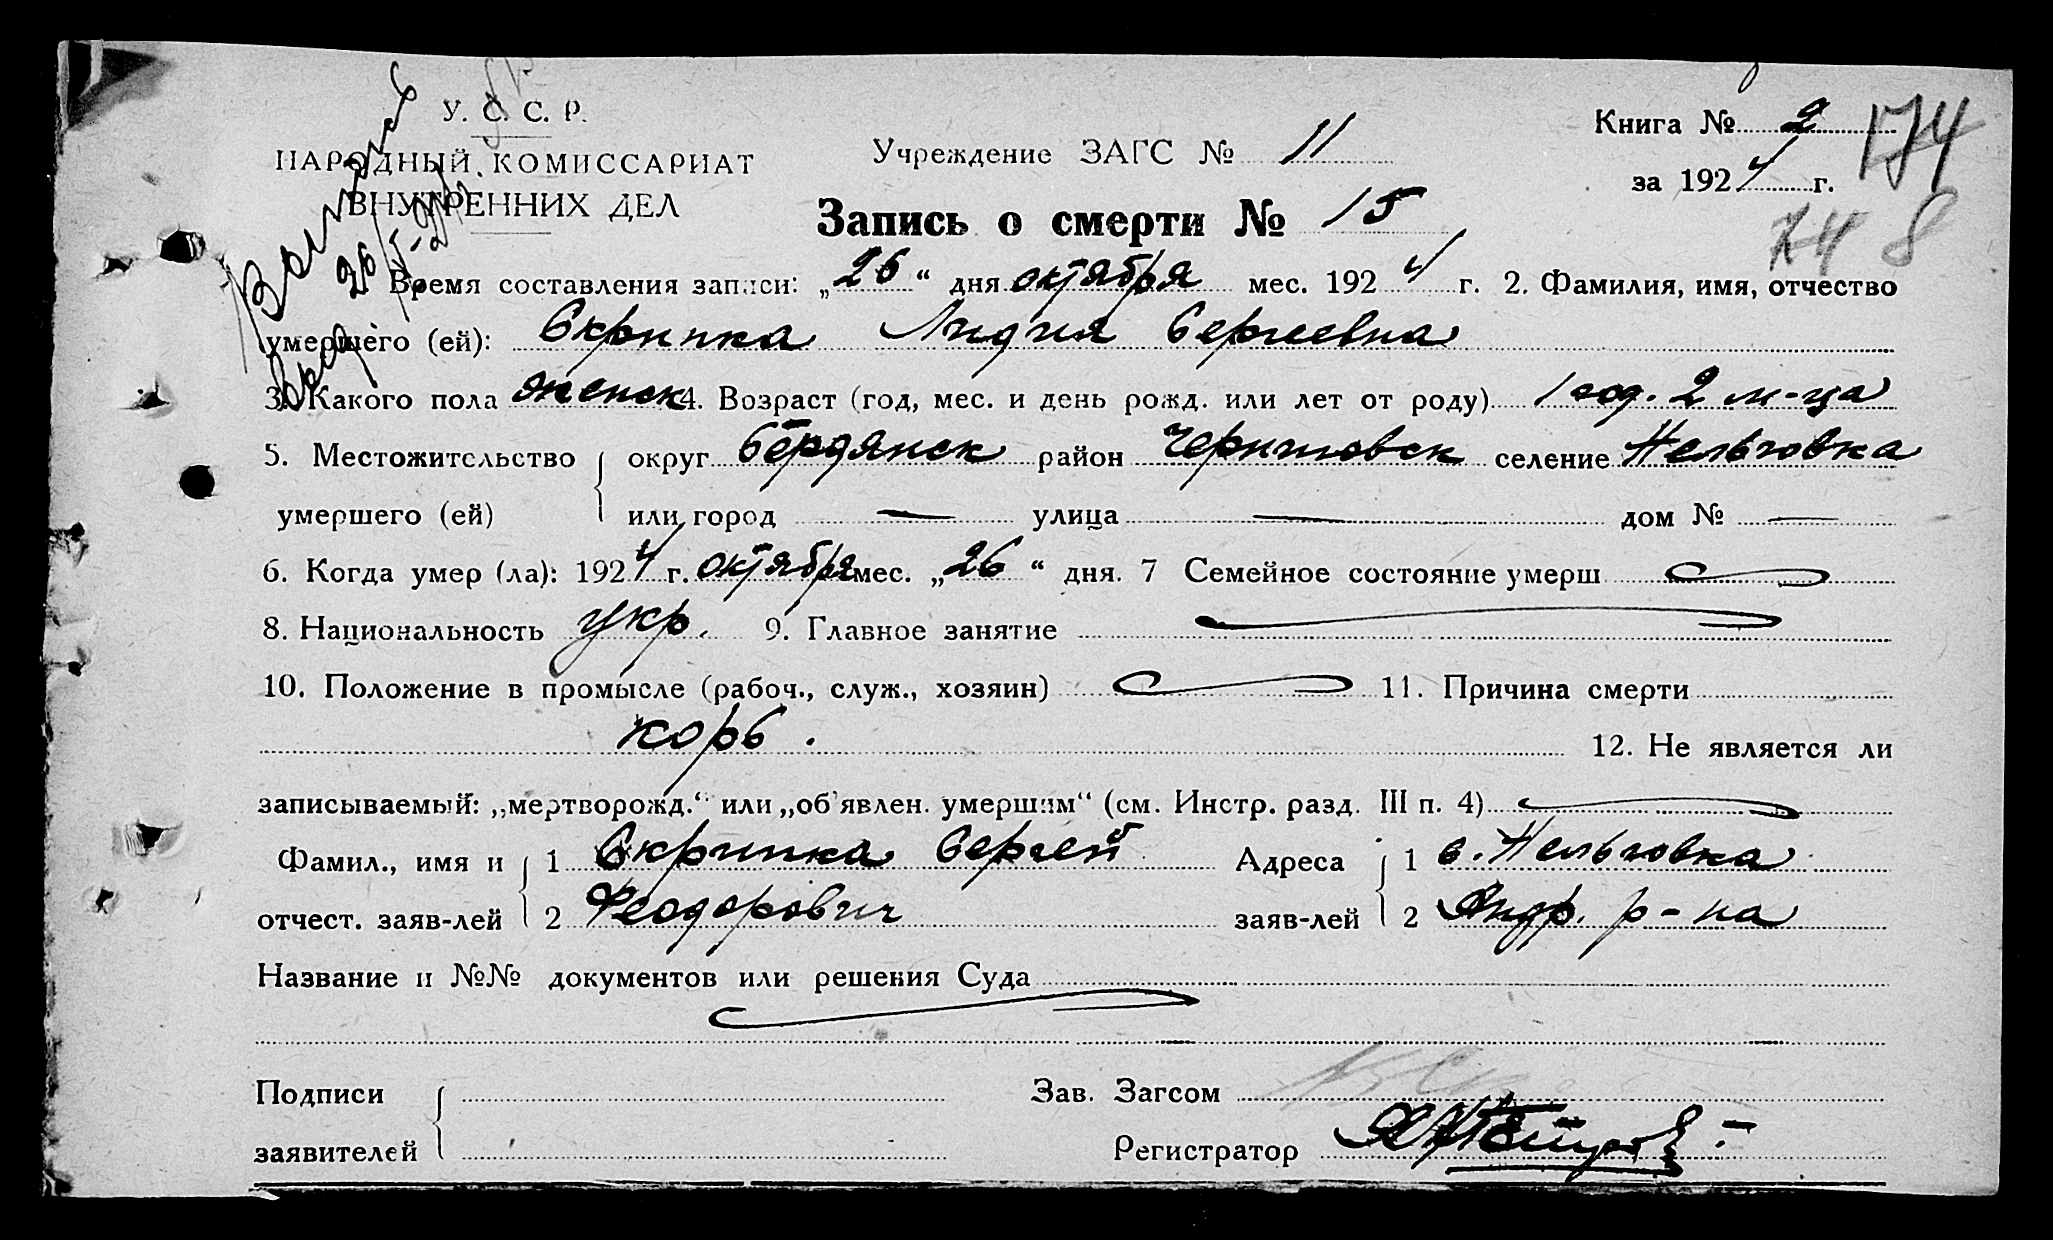 У. С. С. Р.
НАРОДНЫЙ КОМИССАРИАТ
ВНУТРЕННИХ ДЕЛ
Учреждение ЗАГС № 11
Книга № 2
за 1924 г.
174
74 8
Запись о смерти № 15
Время составления записи: „26“ дня октября мес. 1924 г. 2. Фамилия, имя, отчество
умершего (ей): Скрипка Лидия Сергеевна
3. Какого пола женск 4. Возраст (год, мес. и день рожд. или лет от роду) 1 год. 2 м-ца
5. Местожительство округ Бердянск район Черниговск селение Нельговка
умершего (ей) или город — улица — дом № —
6. Когда умер (ла): 1924 г. октября мес. „26“ дня. 7 Семейное состояние умерш
8. Национальность укр. 9. Главное занятие
10. Положение в промысле (рабоч., служ., хозяин) 11. Причина смерти
корь. 12. Не является ли
записываемый: „мертворожд.“ или „об'явлен. умершим“ (см. Инстр. разд. III п. 4)
Фамил., имя и 1 Скрипка Сергей Адреса 1 с. Нельговка
отчест. заяв-лей 2 Феодорович заяв-лей 2 Андр. р-на
Название и №№ документов или решения Суда
Подписи Зав. Загсом
заявителей Регистратор